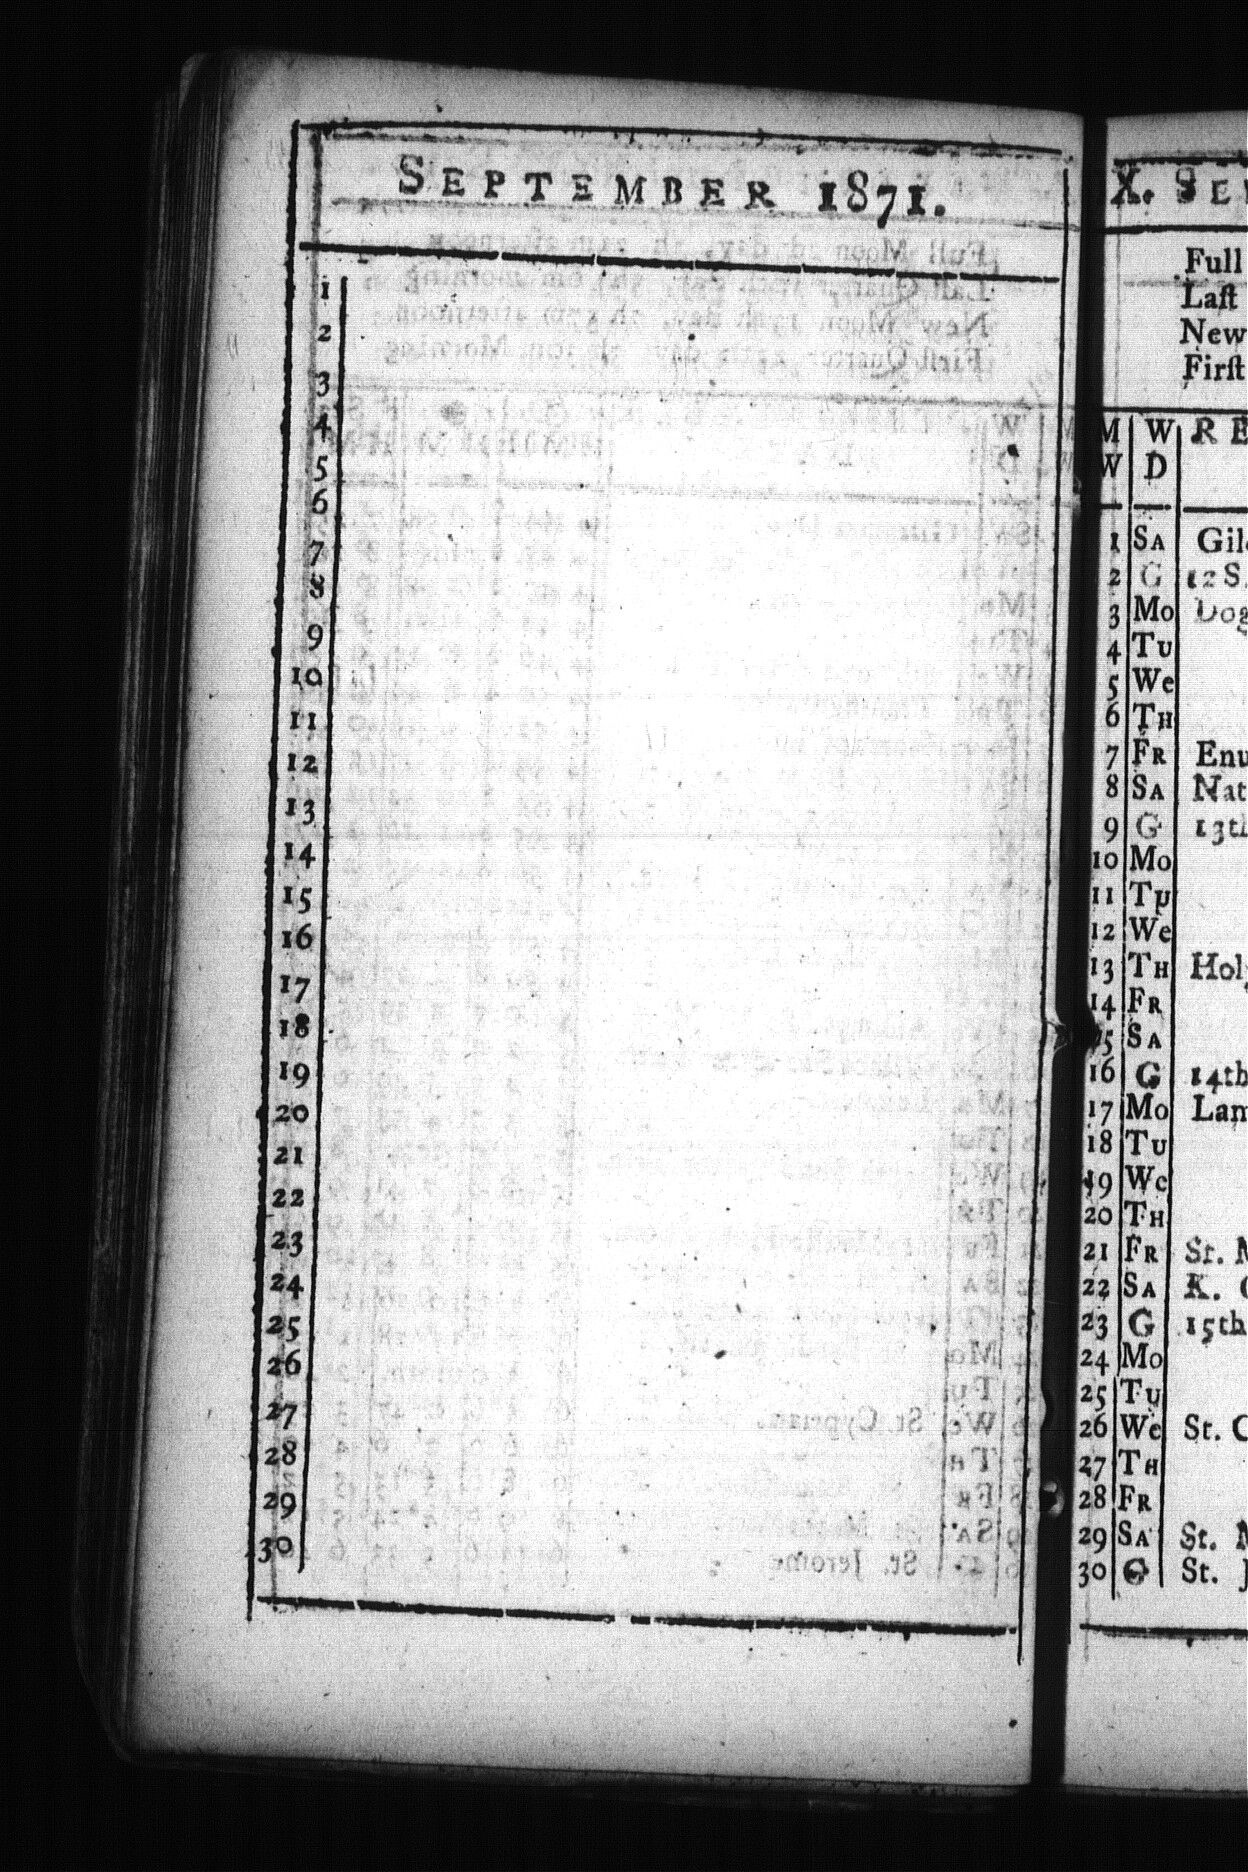 SEPTEMBER 1871.
1
2
3
4
5
6
7
8
9
10
11
12
13
14
15
16
17
18
19
20
21
22
23
24
25
26
27
28
29
30
X. SE
Full
Laſt
New
Firſt
M W RE
W D
1 SA Gil
2 G 12 S.
3 MO Dog
4 TU
5 We
6 TH
7 FR Enu
8 SA Nat
9 G 13th
10 MO
11 TU
12 We
13 TH Holy
14 FR
15 SA
16 G 14th
17 MO Lam
18 TU
19 We
20 TH
21 FR St. M
22 SA K. G
23 G 15th
24 MO
25 TU
26 We St. C
27 TH
28 FR
29 SA St. M
30 G St. J